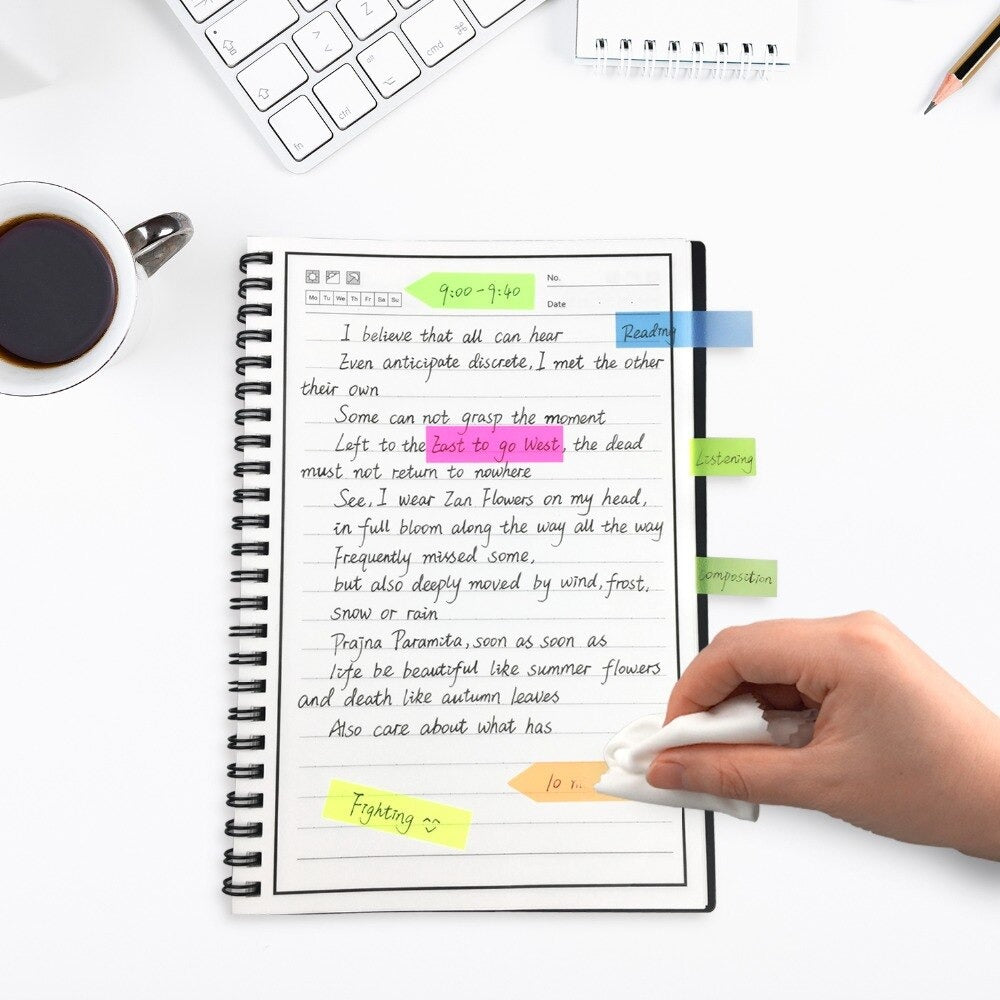 Z
cmd
⌘
ctrl
fn
9:00-9:40
No.
Mo Tu We Th Fr Sa Su
Date
I believe that all can hear
Reading
Even anticipate discrete, I met the other
their own
Some can not grasp the moment
Left to the East to go West, the dead
Listening
must not return to nowhere
See, I wear Zan Flowers on my head,
in full bloom along the way all the way
Frequently missed some,
Composition
but also deeply moved by wind, frost,
snow or rain
Prajna Paramita, soon as soon as
life be beautiful like summer flowers
and death like autumn leaves
Also care about what has
10
Fighting